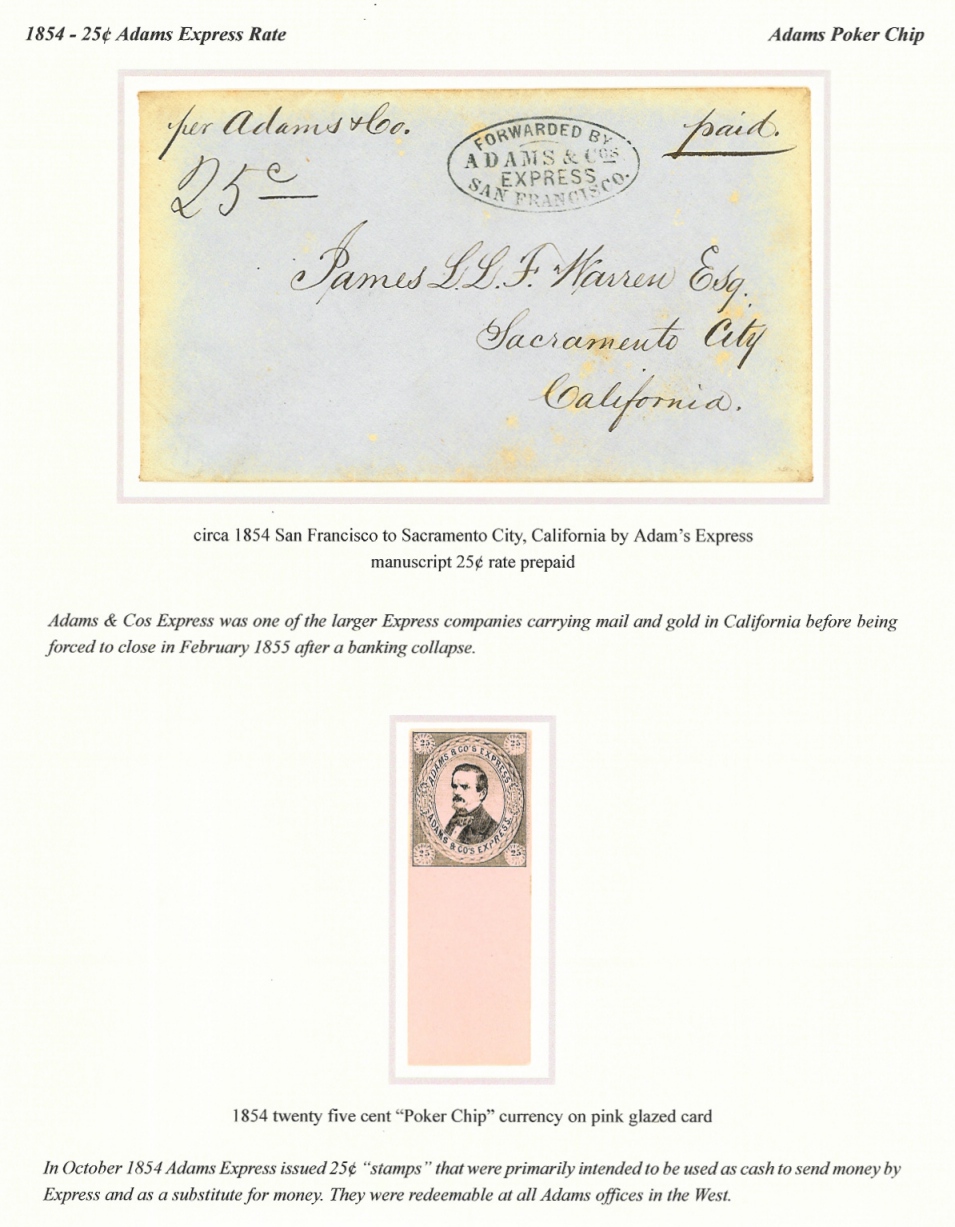 1854 - 25¢ Adams Express Rate
Adams Poker Chip
per Adams & Co.
paid.
25c
FORWARDED BY
ADAMS & COS
EXPRESS
SAN FRANCISCO.
James L.L.F. Warren Esq.
Sacramento City
California.
circa 1854 San Francisco to Sacramento City, California by Adam's Express
manuscript 25¢ rate prepaid
Adams & Cos Express was one of the larger Express companies carrying mail and gold in California before being
forced to close in February 1855 after a banking collapse.
25 25
ADAMS & CO'S EXPRESS
ADAMS & CO'S EXPRESS.
25 25
1854 twenty five cent “Poker Chip” currency on pink glazed card
In October 1854 Adams Express issued 25¢ “stamps” that were primarily intended to be used as cash to send money by
Express and as a substitute for money. They were redeemable at all Adams offices in the West.